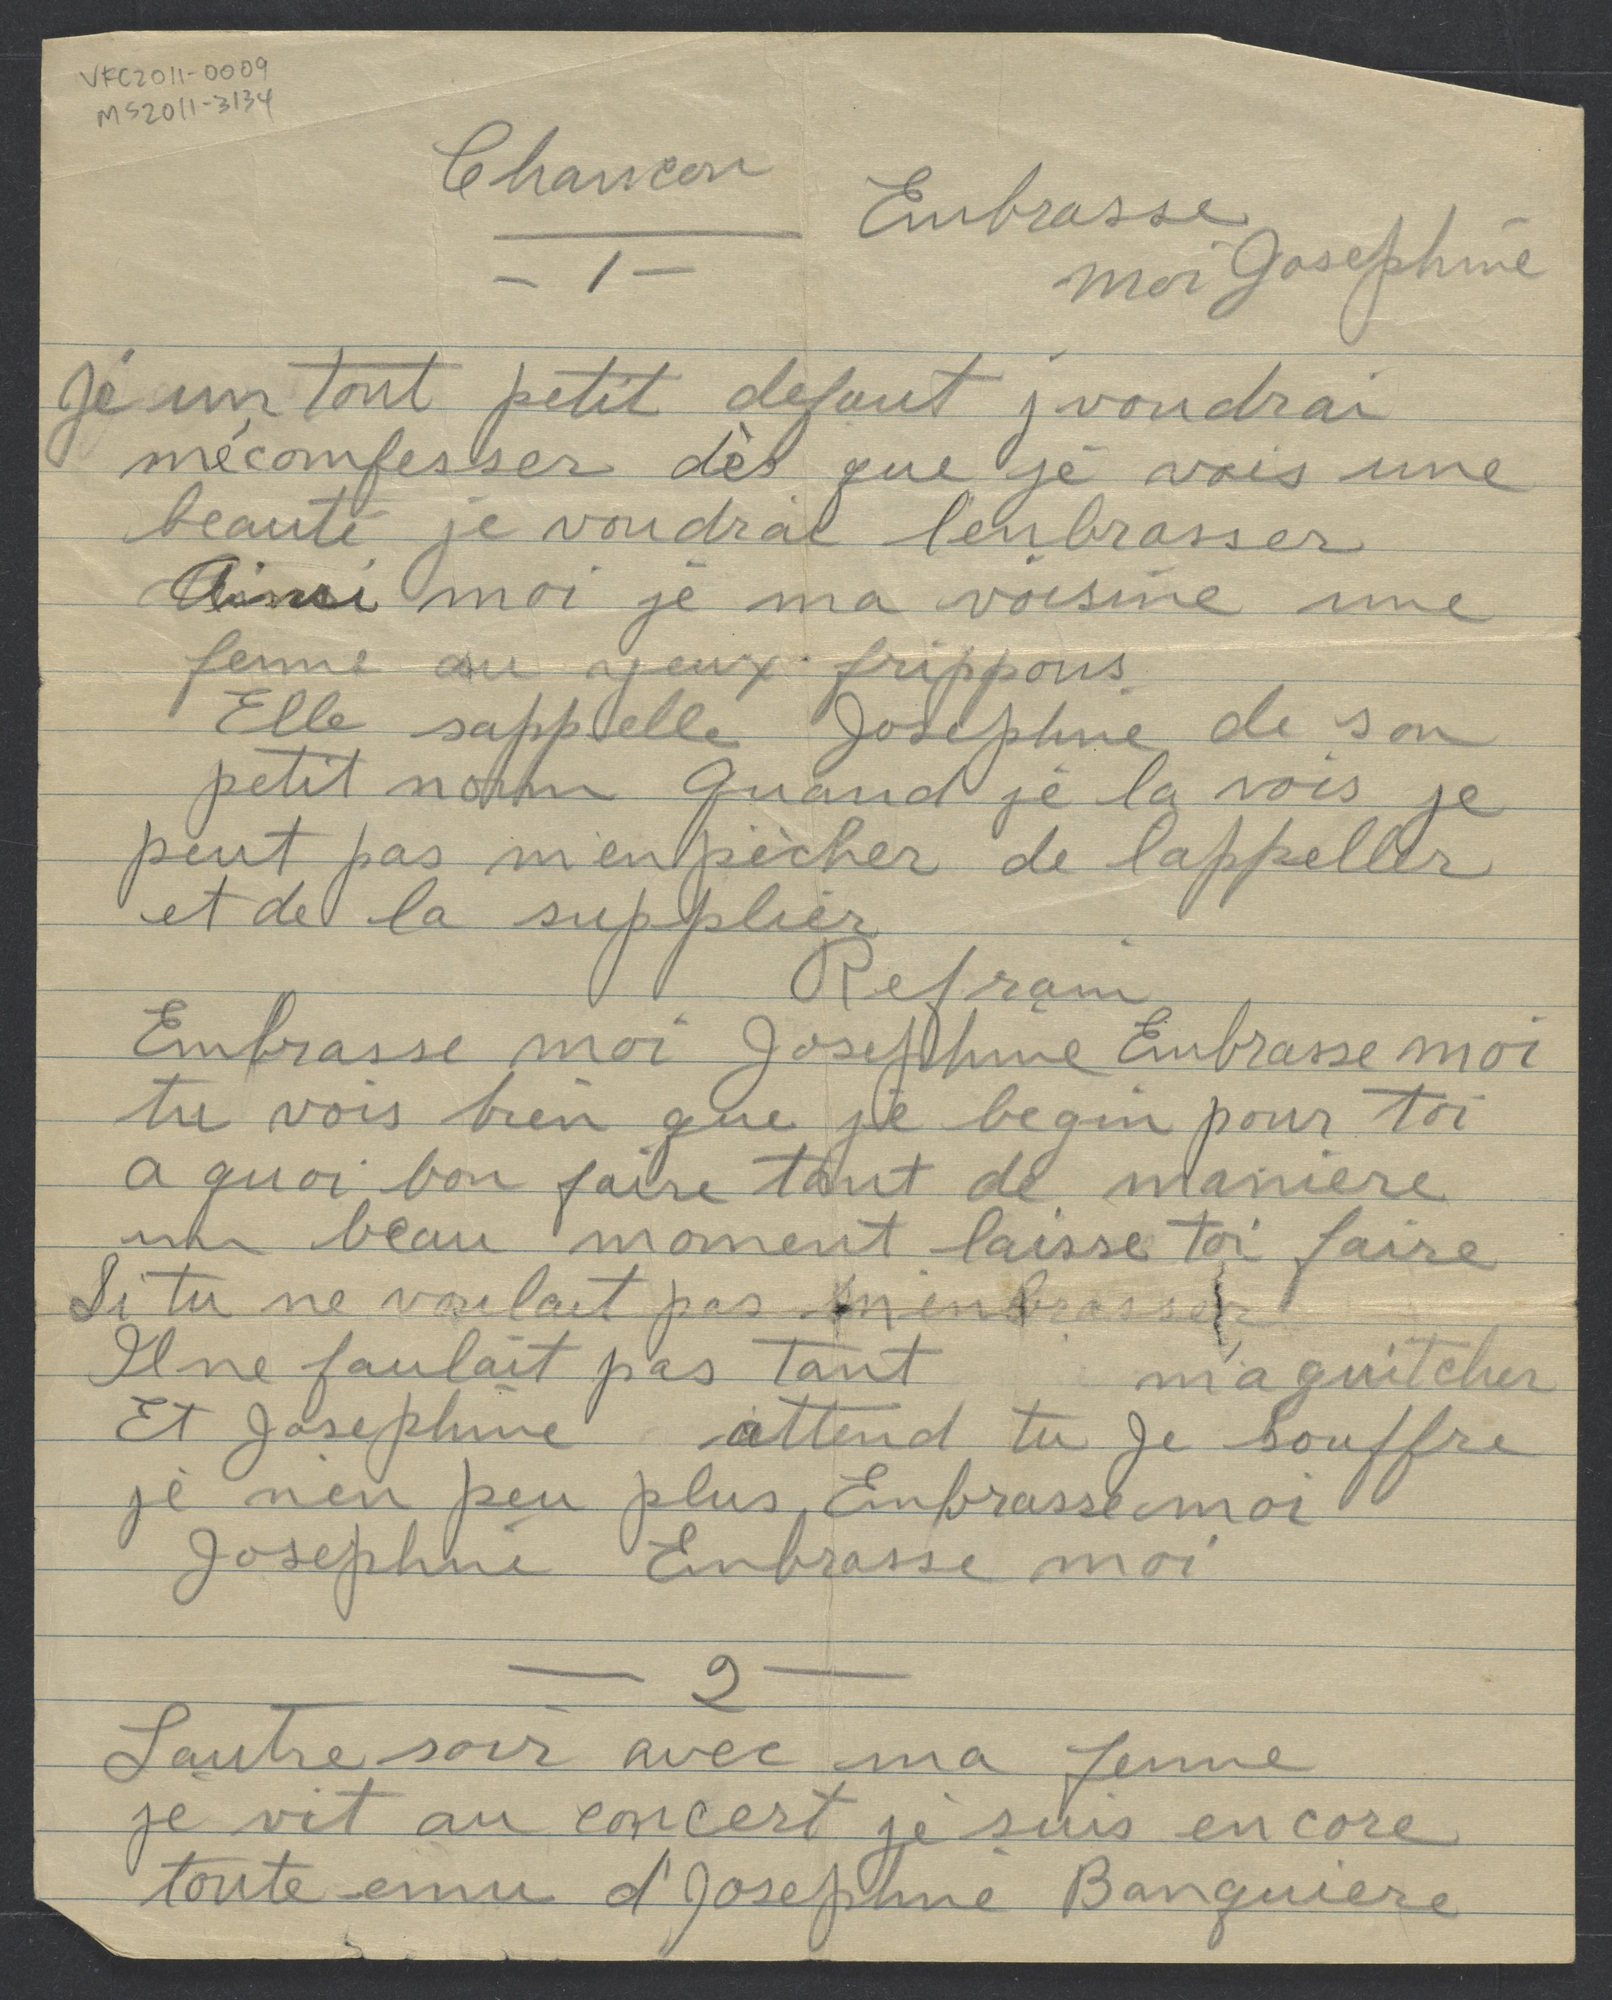 VFC2011-0009
MS2011-3134
Chancon
Embrasse
moi Josephine
- 1 -
Jé un tout petit defaut j'voudrai
mécomfesser dès que je vois une
beauté je voudrai l'enbrasser
Ainsi moi jé ma voisine une
fenme au yeux frippons
Elle sappelle Josephine de son
petit nomm Quand je la vois je
peut pas m'enpècher de lappeller
et de la supplier
Refrain
Embrasse moi Josephine Embrasse moi
tu vois bien que jé begin pour toi
a quoi bon faire tant de maniere
un beau moment laisse toi faire
Si tu ne voulait pas m'enbrasser
Il ne faulait pas tant m'aguitcher
Et Josephine attend tu Je souffre
je n'en peu plus Embrasse moi
Josephine Embrasse moi
— 2 —
L'autre soir avec ma fenme
je vit au concert je suis encore
toute emu d'Josephine Banquiere